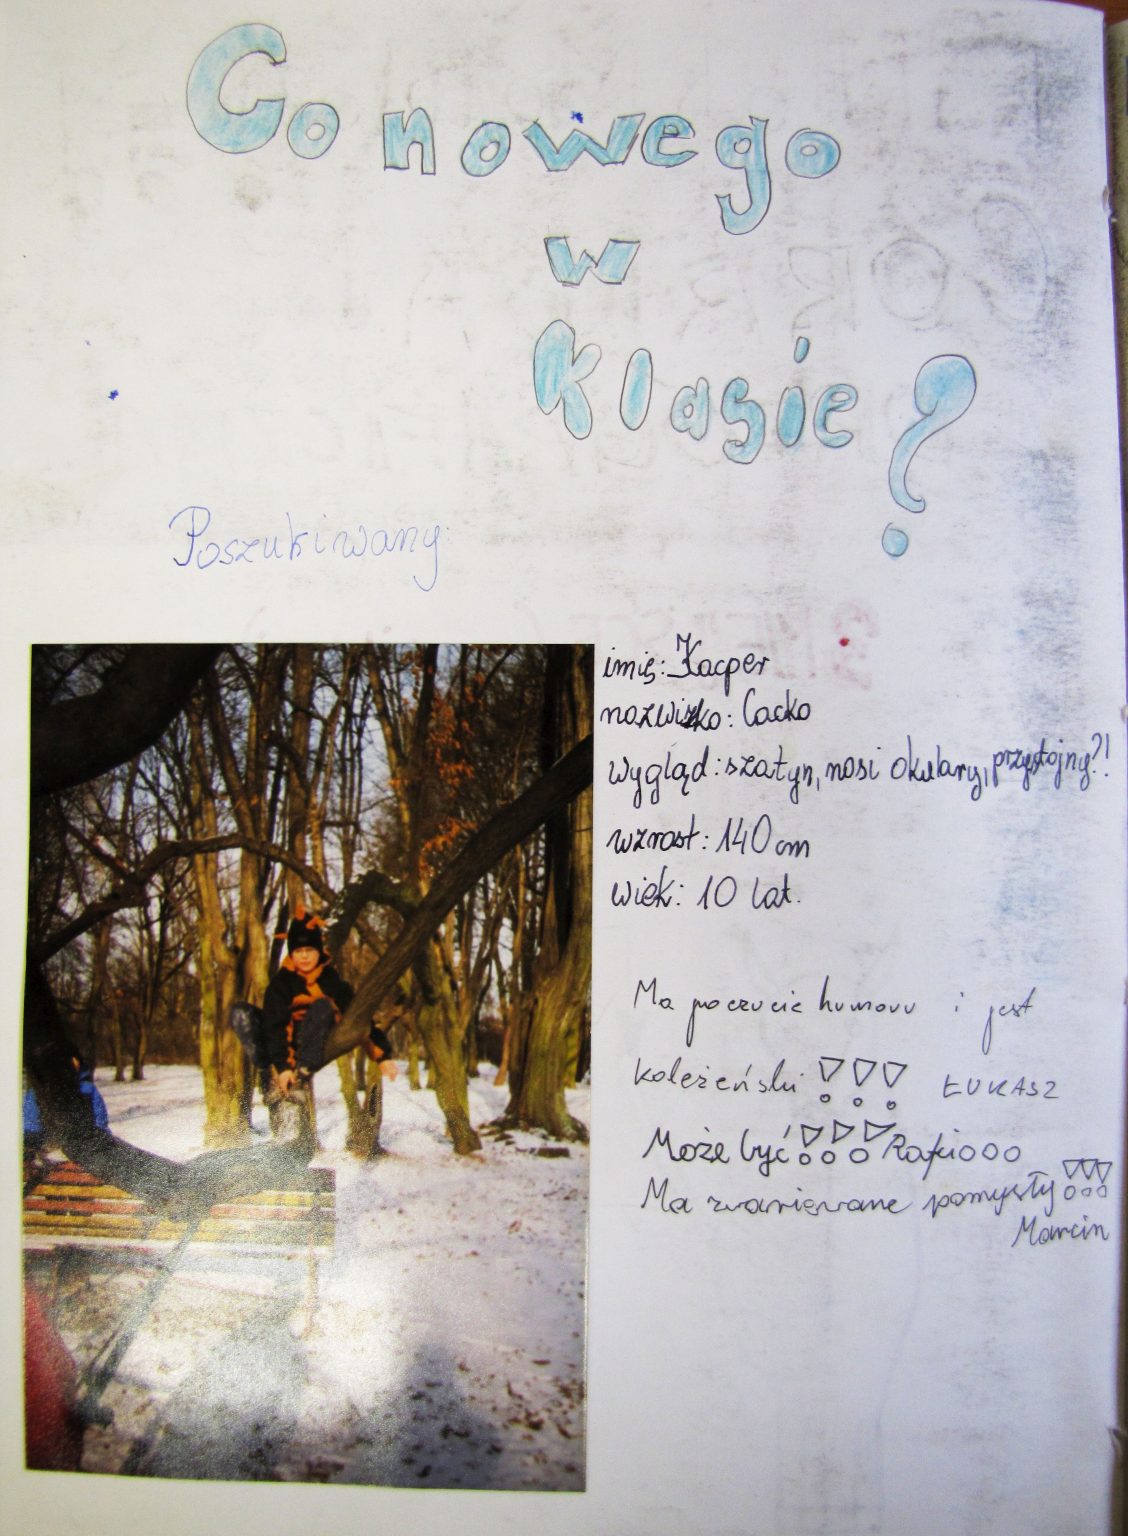 Co nowego
w
klasie?
Poszukiwany:
imię: Kacper
nazwisko: Cacko
wygląd: szatyn, nosi okulary, przystojny?!
wzrost: 140 cm
wiek: 10 lat.
Ma poczucie humoru i jest
koleżeński!!! ŁUKASZ
Może być!!! Rafciooo
Ma zwariowane pomysły!!!
Marcin